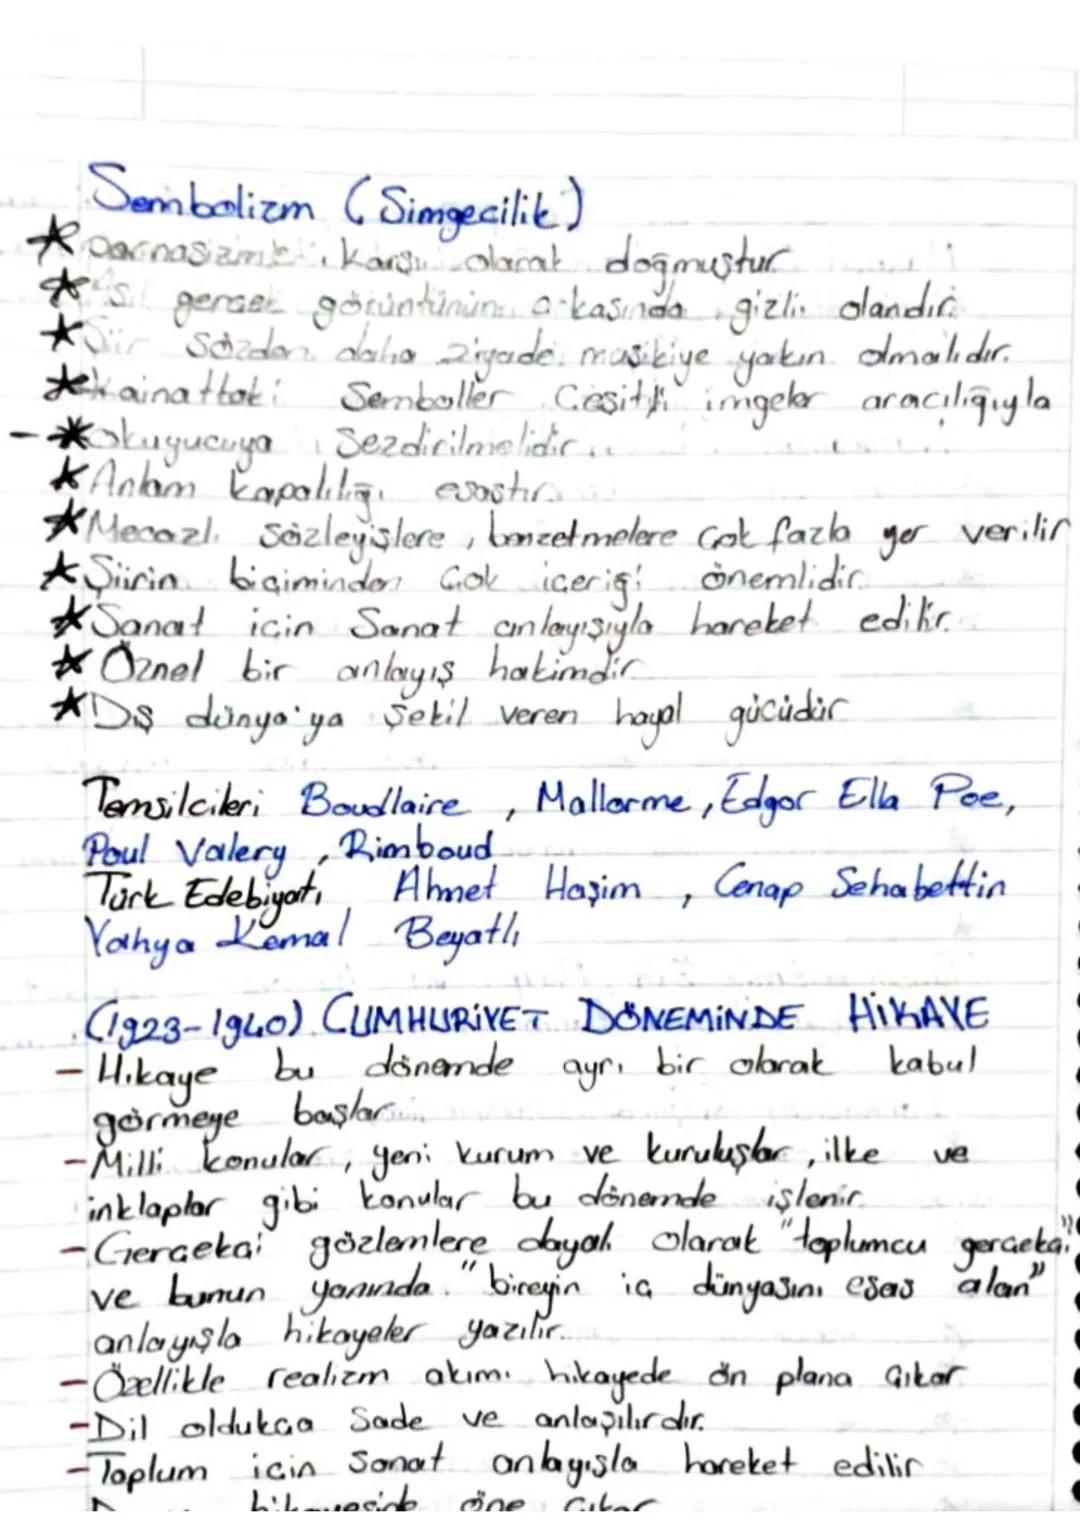 Sembolizm (Simgecilik)
* parnasizme karşı olarak doğmuştur
* gerçek görüntünün arkasında gizli olandır.
* Şiir Sözden daha ziyade musikiye yakın olmalıdır.
* kainattaki Semboller Çeşitli imgeler aracılığıyla
- * okuyucuya Sezdirilmelidir.
* Anlam kapalılığı esastır.
* Mecazlı sözleyişlere, benzetmelere çok fazla yer verilir
* Şiirin biçiminden Çok içeriği önemlidir.
* Sanat için Sanat anlayışıyla hareket edilir.
* Öznel bir anlayış hakimdir.
* Dış dünya'ya Şekil veren hayal gücüdür
Temsilcileri Boudlaire, Mallarme, Edgar Ella Poe,
Paul Valery, Rimboud
Türk Edebiyatı Ahmet Haşim, Cenap Sehabettin
Yahya Kemal Beyatlı
(1923-1940) CUMHURİYET DÖNEMİNDE HİKAYE
- Hikaye bu dönemde ayrı bir olarak kabul
görmeye başlar.
- Milli konular, yeni kurum ve kuruluşlar, ilke ve
inklaplar gibi konular bu dönemde işlenir.
- Gerçekçi gözlemlere dayalı olarak "toplumcu gerçekçi"
ve bunun yanında "bireyin iç dünyasını esas alan"
anlayışla hikayeler yazılır.
- Özellikle realizm akımı hikayede ön plana çıkar
- Dil oldukça Sade ve anlaşılırdır.
- Toplum için Sanat anlayışla hareket edilir
öne çıkar